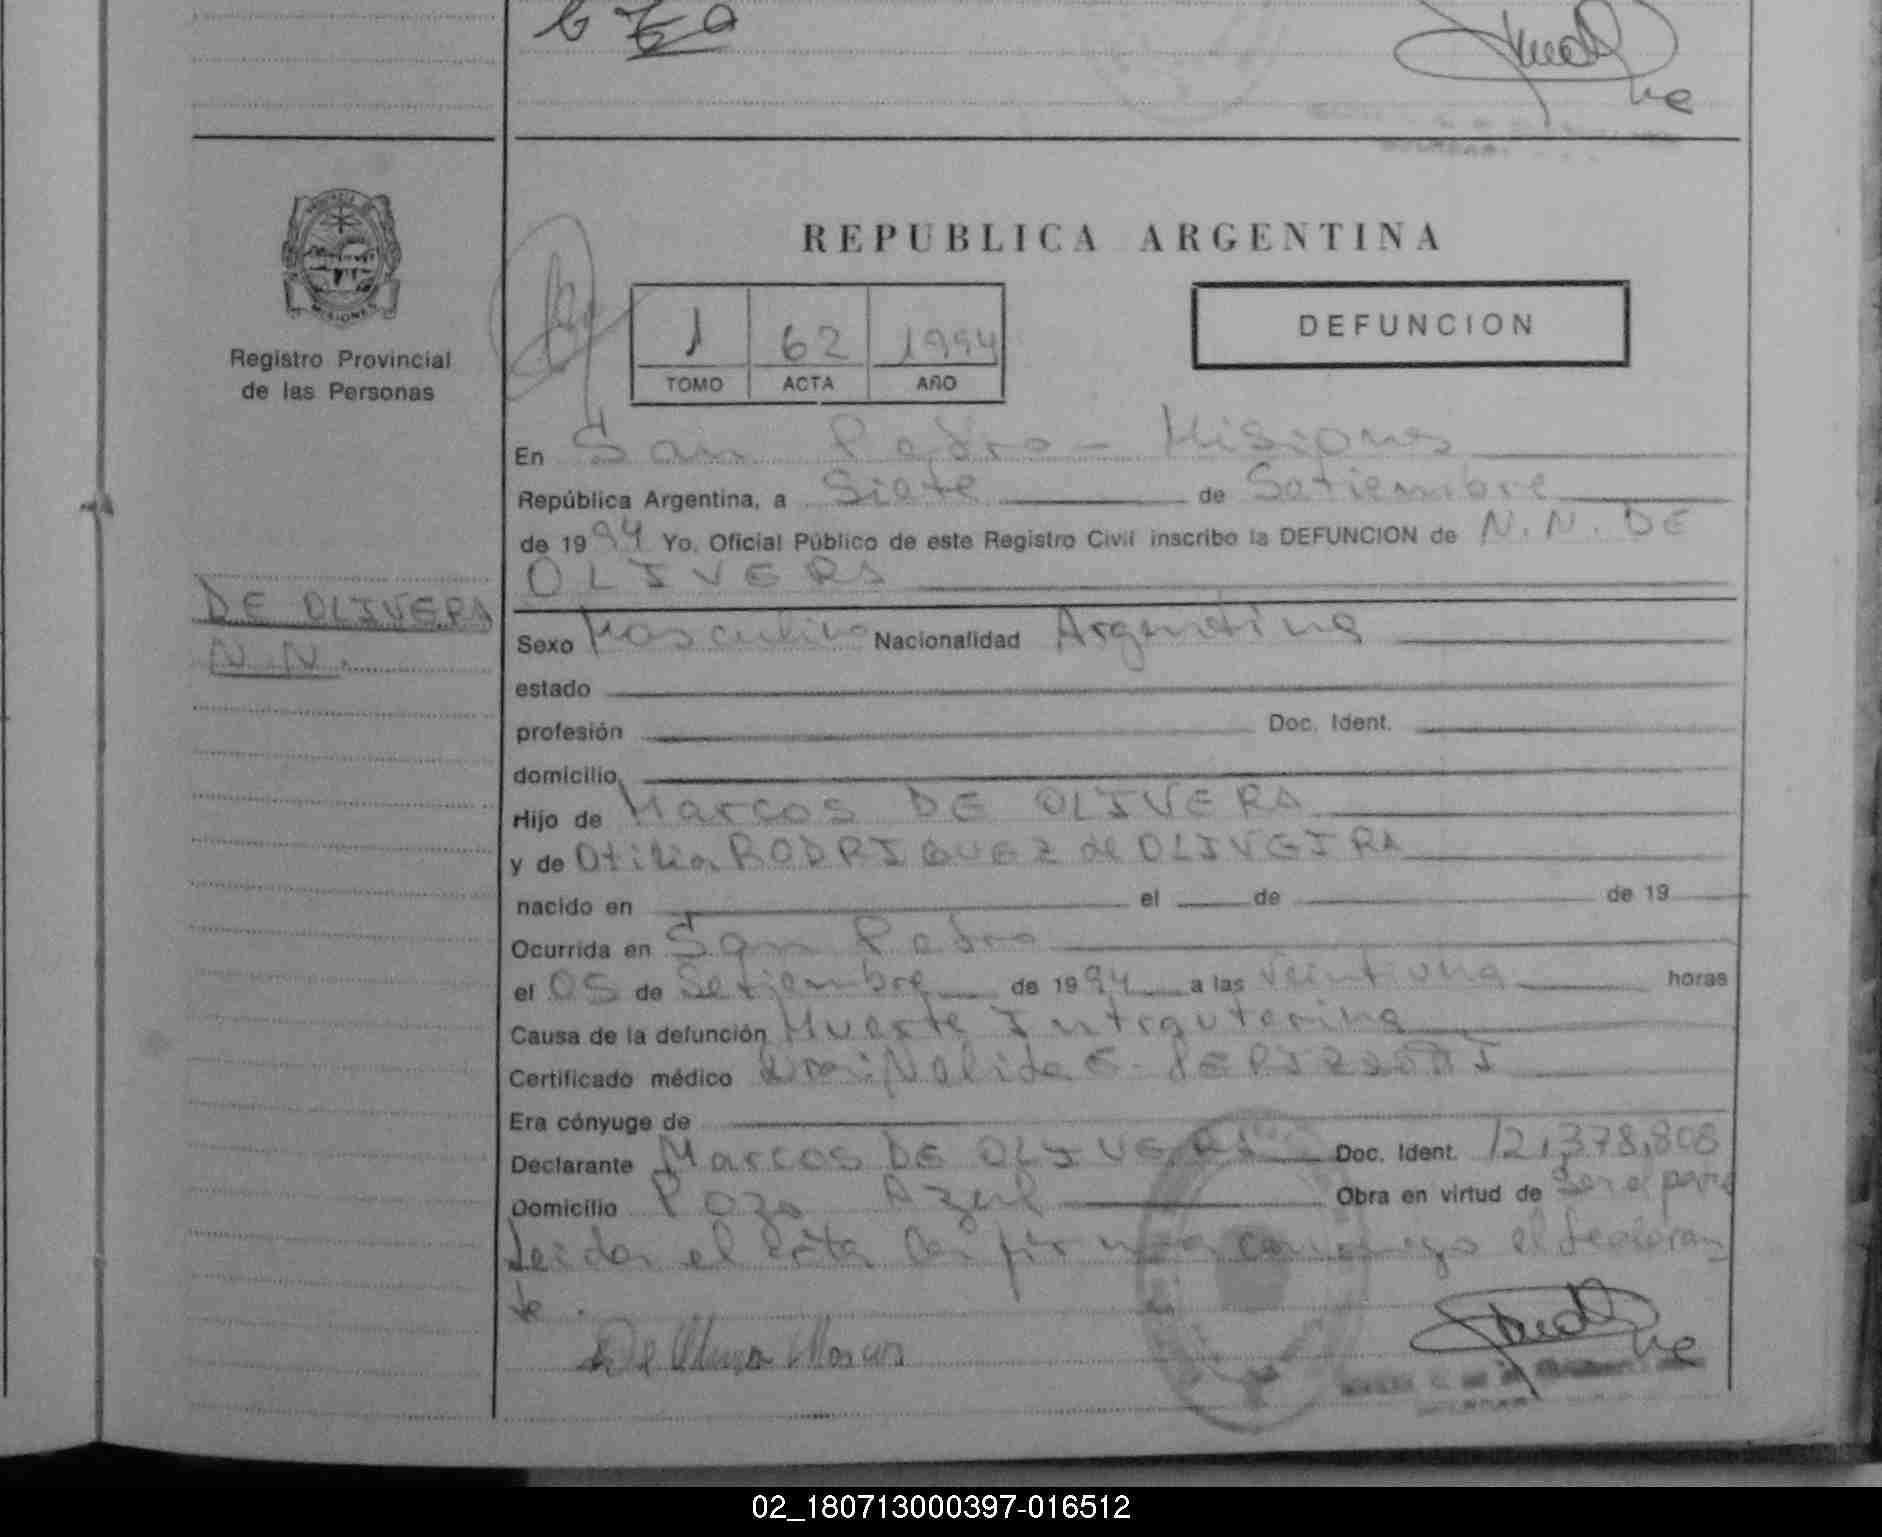 REPUBLICA ARGENTINA
Registro Provincial
de las Personas
1 62 1994
TOMO ACTA AÑO
DEFUNCION
En San Pedro - Misiones
República Argentina, a Siete de Setiembre
de 1994 Yo, Oficial Público de este Registro Civil inscribo la DEFUNCION de N.N. DE
OLIVERA
DE OLIVERA
N.N.
Sexo Masculino Nacionalidad Argentina
estado
profesión Doc. Ident.
domicilio
Hijo de Marcos DE OLIVERA
y de Otilia RODRIGUEZ de OLIVEIRA
nacido en el de de 19
Ocurrida en San Pedro
el 05 de Setiembre de 1994 a las Veintiuna horas
Causa de la defunción Muerte Intrauterina
Certificado médico Dra: Nelida E.
Era cónyuge de
Declarante Marcos DE OLIVERA Doc. Ident. 12,378,808
Domicilio Pozo Azul Obra en virtud de Ser el padre
Leida el Acta la firma conmigo el declaran
te.
De Olivera Marcos
02_180713000397-016512